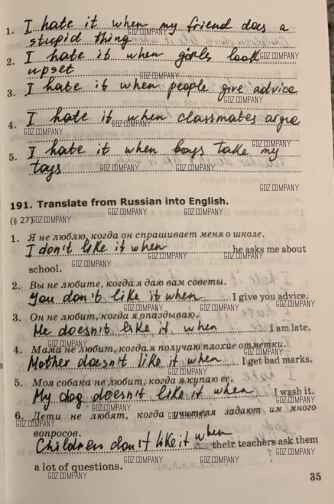 1. I hate it when my friend does a
stupid thing
2. I hate it when girls look
upset
3. I hate it when people give advice
4. I hate it when classmates argue
5. I hate it when boys take my
toys
191. Translate from Russian into English.
(§ 27)
1. Я не люблю, когда он спрашивает меня о школе.
I don't like it when he asks me about
school.
2. Вы не любите, когда я даю вам советы.
You don't like it when I give you advice.
3. Он не любит, когда я опаздываю.
He doesn't like it when I am late.
4. Мама не любит, когда я получаю плохие отметки.
Mother doesn't like it when I get bad marks.
5. Моя собака не любит, когда я купаю её.
My dog doesn't like it when I wash it.
6. Дети не любят, когда учителя задают им много
вопросов.
Children don't like it when their teachers ask them
a lot of questions.
35
GDZ.COMPANY